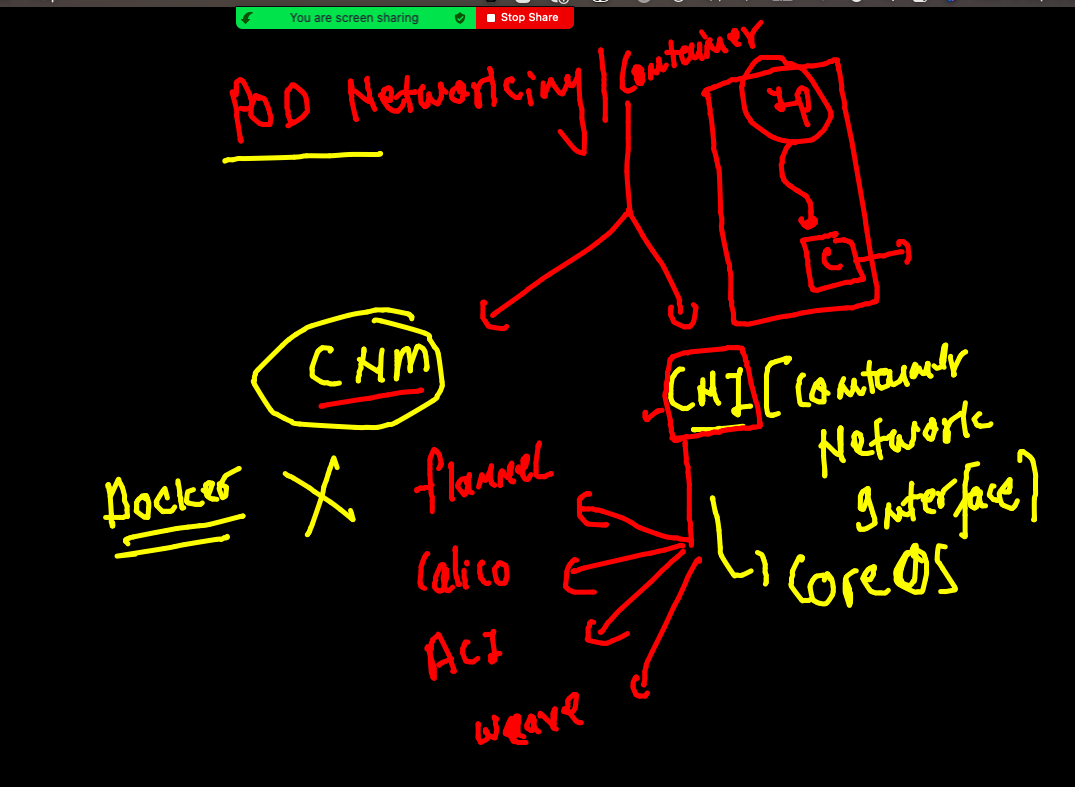 You are screen sharing
Stop Share
POD Networking | Container
IP
C
CNM
CNI [Container
Network
Interface]
Docker X
flannel
Calico
ACI
weave
CoreOS